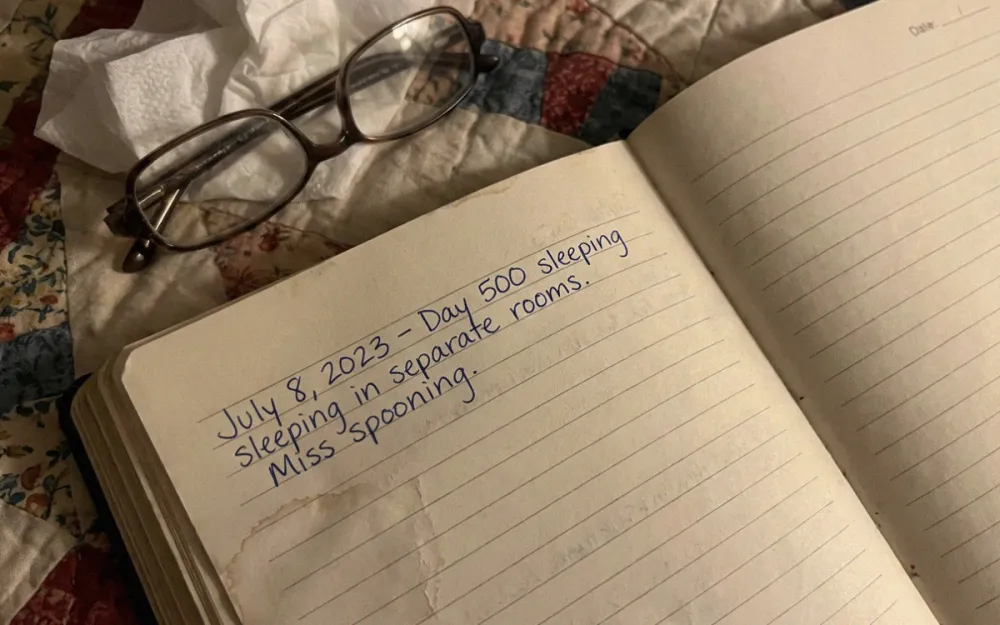 Date:
July 8, 2023 – Day 500 sleeping
sleeping in separate rooms.
Miss spooning.